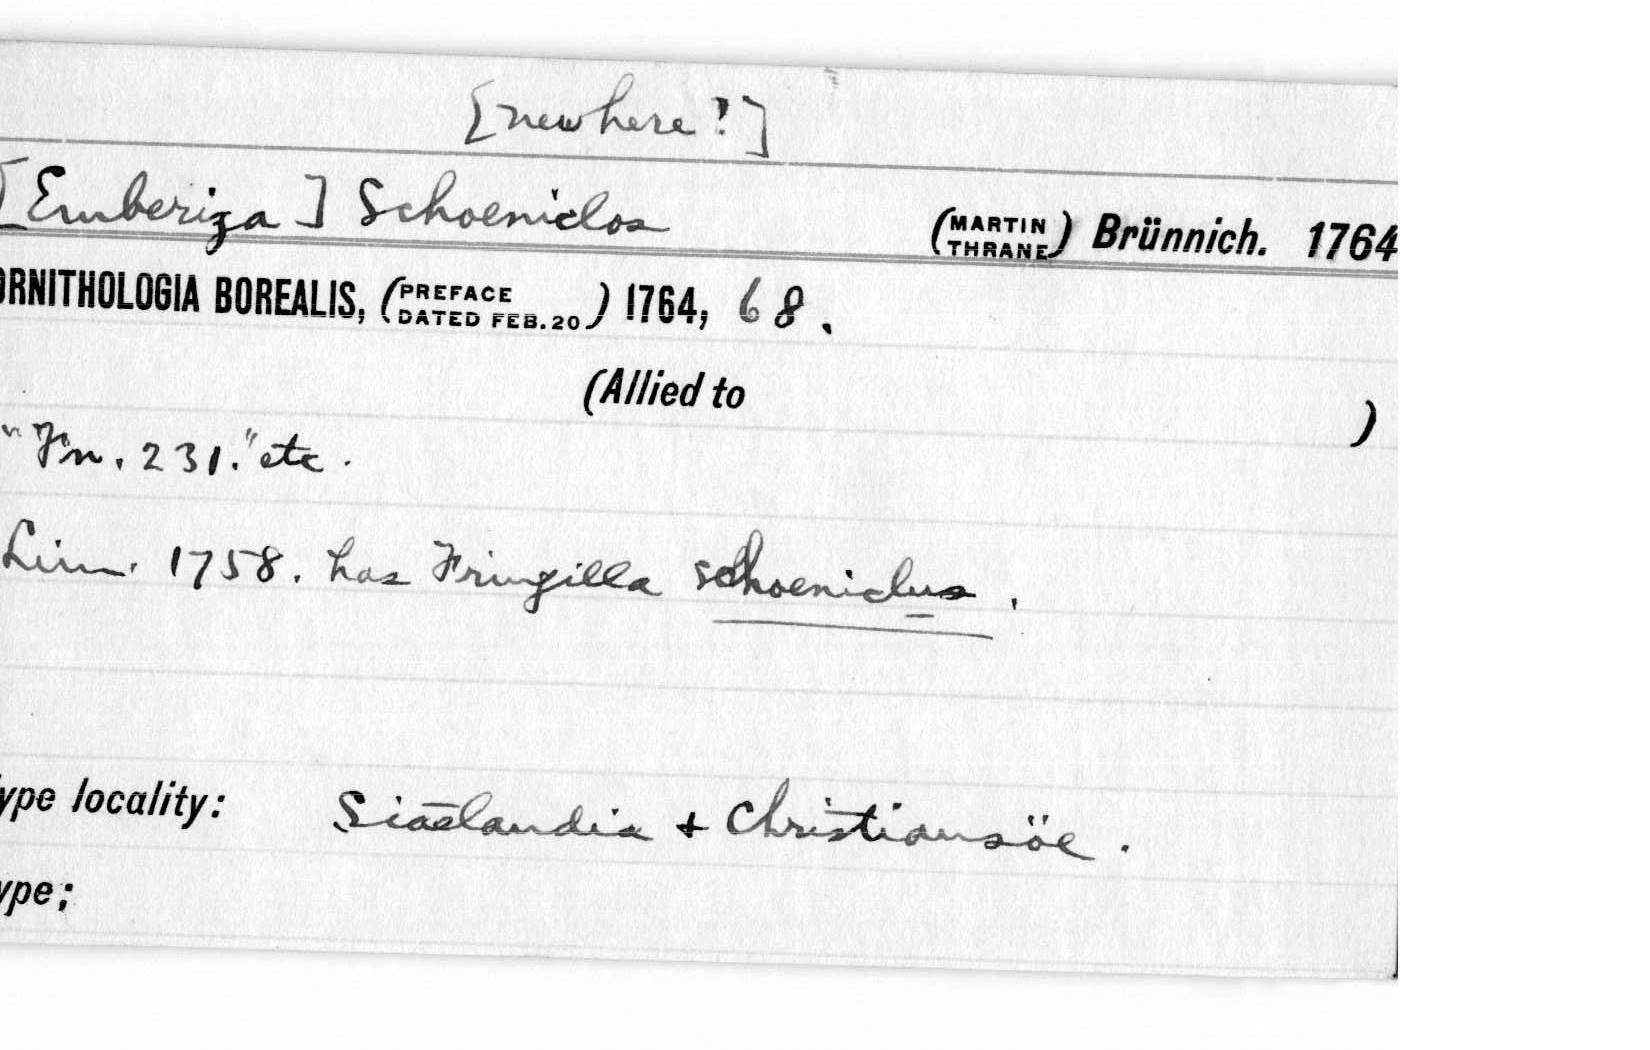 [new here?]
[Emberiza] Schoeniclos (MARTIN THRANE) Brünnich. 1764
ORNITHOLOGIA BOREALIS, (PREFACE DATED FEB. 20) 1764, 68.
(Allied to )
"Fn. 231." etc.
Linn. 1758. has Fringilla schoeniclus.
ype locality: Siaelandia + Christiansöe.
ype;